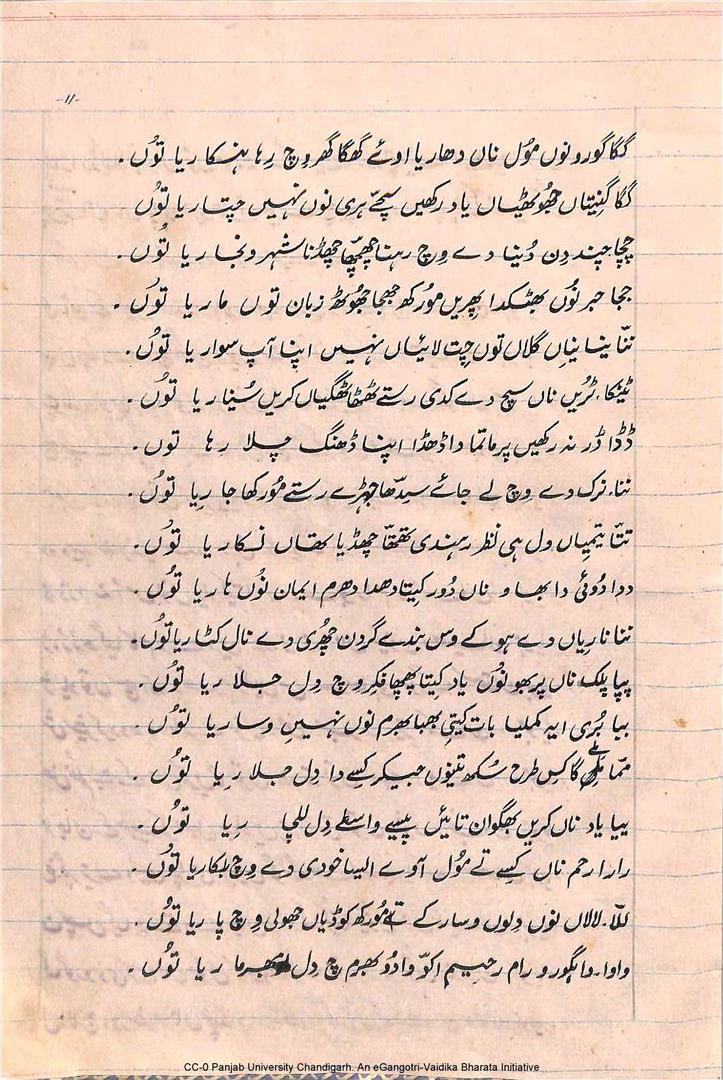 -۱۱-
گگا گورو نوں مُول ناں دھاریا اوئے گھگا گھر وچ رہا ہنسکا ریا توُں ۔
گگا گنیتاں جھُوٹھیاں یاد رکھیں سچے ہری نوں نہیں جپتا ریا توُں
چچا چند دن دُنیا دے وچ رہنا چھچھا چھڈنا شہر و نجا ریا توُں ۔
ججا حبر نُوں بھٹکدا پھریں مُورکھ جھجا جھُوٹھ زبان توں ما ریا توُں ۔
ننّا نیناں گلاں توں چت لائیاں نہیں اپنا آپ سوار یا توُں ۔
ٹینکا ۔ ٹریں ناں سچ دے کدی رستے ٹھٹھا ٹھگیاں کریں سُنیا ریا توُں ۔
ڈڈا ڈر نہ رکھیں پرماتما دا ڈھڈا اپنا ڈھنگ چلا رہا توں ۔
ننا ۔ نرک دے وچ لے جائے سیدھا جہڑے رستے مُورکھا جا رہیا توُں ۔
تتّا یتیمیاں ول ہی نظر رہندی تھتھا چھڈیا کتھاں نسکا ریا توُں ۔
ددا دُوئی دا بھاو ناں دُور کیتا دھدا دھرم ایمان نُوں ہا ریا توُں ۔
ننا ناریاں دے ہو کے وس بندے گردن چھُری دے نال کٹا ریا توُں ۔
پپا پلک ناں پربھو نوُں یاد کیتا پھپھا فکر وچ دل جلا ریا توُں ۔
ببا بُری ایہ کملیا بات کیتی بھبا بھرم نوں نہیں وسا ریا توُں ۔
ممّا ملے گا کس طرح سُکھ تینوں جیکر کسے دا دل جلا ریا توُں ۔
ییا یاد ناں کریں بھگوان تائیں پیسے واسطے دل للچا ریا توُں ۔
رارا رحم ناں کسے تے مُول آوے ایسا خودی دے وچ بلکا ریا توُں ۔
للّا ۔ لالاں نوں دلوں وسار کے تے مُورکھ کوڈیاں جھولی وچ پا ریا توُں ۔
واوا ۔ واہگورو رام رحیم اکو وادو بھرم چ دل بھرما ریا توُں ۔
CC-0 Panjab University Chandigarh. An eGangotri-Vaidika Bharata Initiative